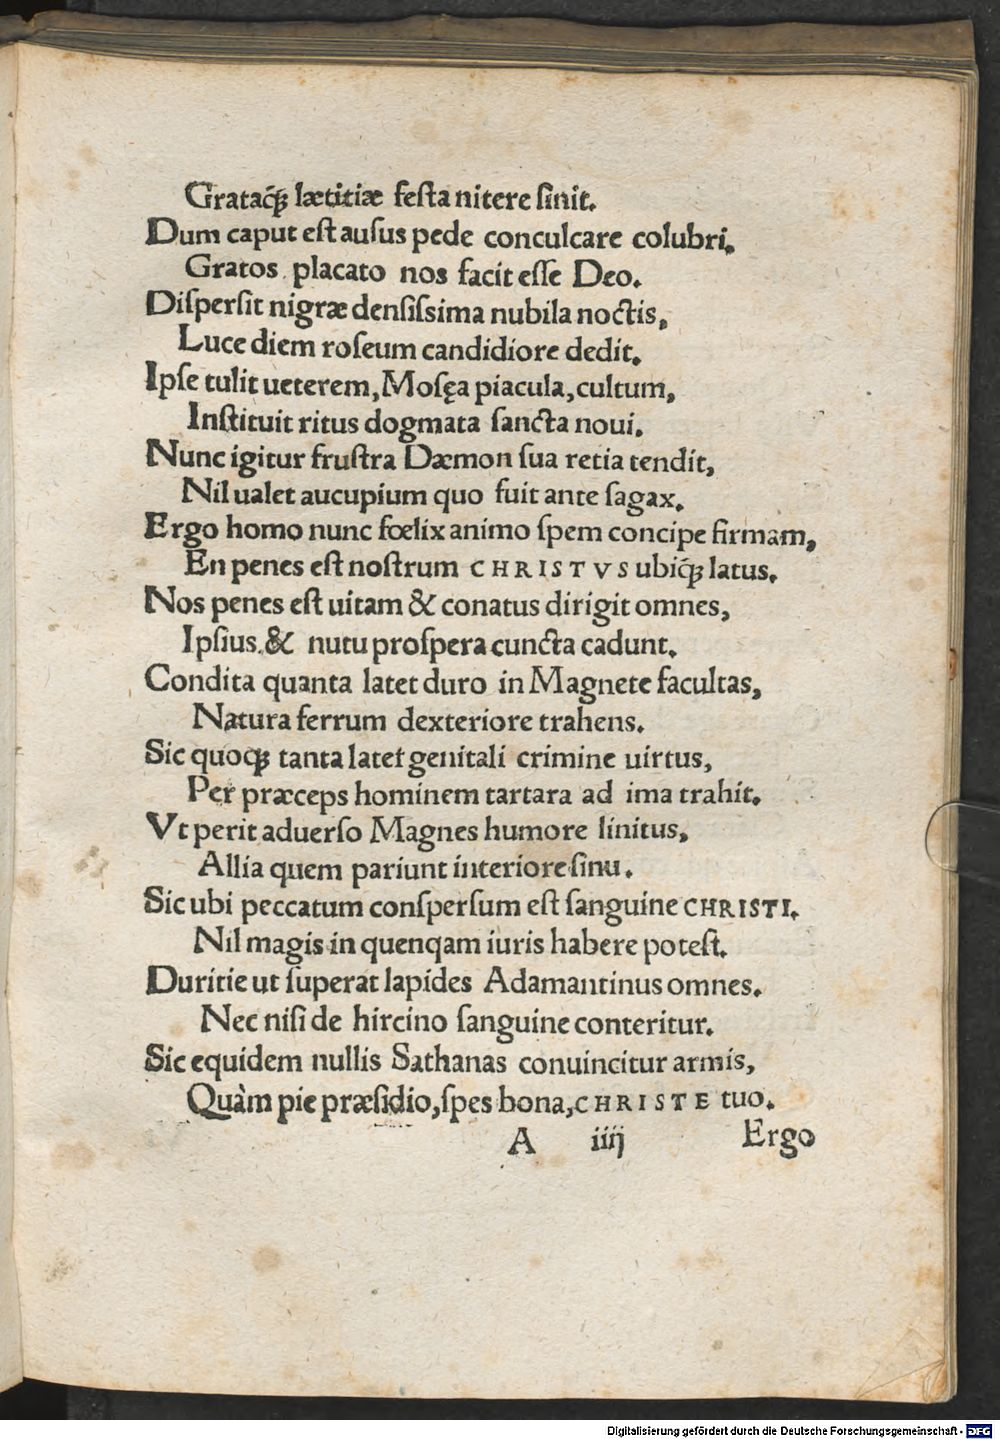 Grataq́ꝫ lætitiæ feſta nitere ſinit.
Dum caput eſt auſus pede conculcare colubri.
Gratos placato nos facit eſſe Deo.
Diſperſit nigræ denſiſsima nubila noctis,
Luce diem roſeum candidiore dedit.
Ipſe tulit ueterem, Moſęa piacula, cultum,
Inſtituit ritus dogmata ſancta noui.
Nunc igitur fruſtra Dæmon ſua retia tendit,
Nil ualet aucupium quo fuit ante ſagax.
Ergo homo nunc fœlix animo ſpem concipe firmam,
En penes eſt noſtrum CHRISTVS ubiq́ꝫ latus.
Nos penes eſt uitam & conatus dirigit omnes,
Ipſius & nutu proſpera cuncta cadunt.
Condita quanta latet duro in Magnete facultas,
Natura ferrum dexteriore trahens.
Sic quoqꝫ tanta latet genitali crimine uirtus,
Per præceps hominem tartara ad ima trahit.
Vt perit aduerſo Magnes humore linitus,
Allia quem pariunt interiore ſinu.
Sic ubi peccatum conſperſum eſt ſanguine CHRISTI.
Nil magis in quenqam iuris habere poteſt.
Duritie ut ſuperat lapides Adamantinus omnes.
Nec niſi de hircino ſanguine conteritur.
Sic equidem nullis Sathanas conuincitur armis,
Quàm pie præſidio, ſpes bona, CHRISTE tuo.
A iiij Ergo
Digitalisierung gefördert durch die Deutsche Forschungsgemeinschaft - DFG